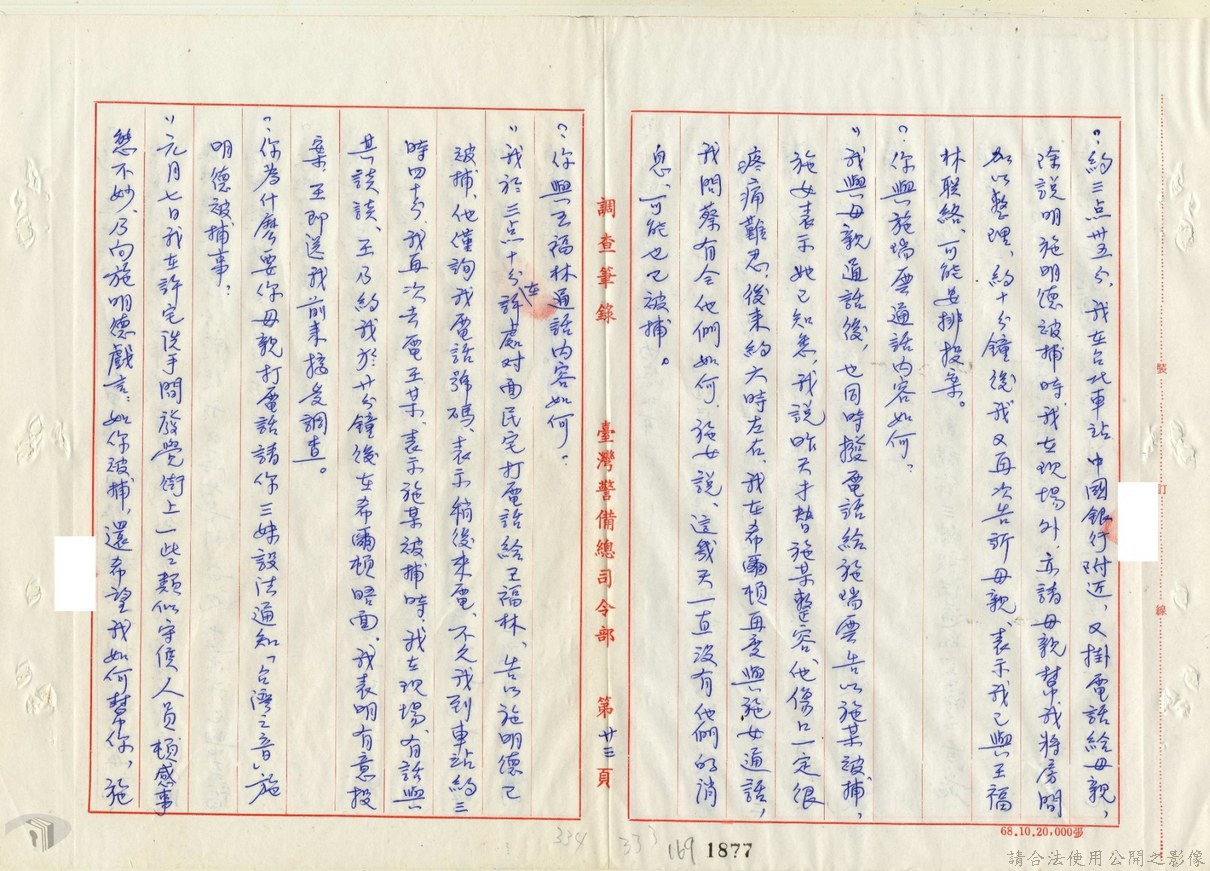 ：約三点卅五分，我在台北車站中國銀行附近，又掛電話給母親，
除說明施明德被捕時，我在現場外，亦請母親幫我將房間
加以整理，約十分鐘後我又再次告訴母親，表示我已與王福
林联絡，可能安排投案。
？你與施瑞雲通話內容如何？
：我與母親通話後，也同時撥電話給施瑞雲告以施某被捕，
施女表示她已知悉，我說昨天才替施某整容，他傷口一定很
疼痛難忍，後來約六時左右，我在希爾頓再度與施女通話，
我問蔡有全他們如何，施女說，這幾天一直沒有他們的消
息，可能也已被捕。
調查筆錄
臺灣警備總司令部
第廿三頁
？你與王福林通話內容如何？
：我於三点十分在許處对面民宅打電話給王福林，告以施明德已
被捕，他僅詢我電話號碼，表示稍後來電，不久我到車站約三
時四十分，我再次去電王某，表示施某被捕時，我在現場，有話與
其談談，王乃約我於廿分鐘後在希爾頓晤面，我表明有意投
案，王即送我前來接受調查。
？你為什麼要你母親打電話請你三妹設法通知「台灣之音」施
明德被捕事？
：元月七日我在許宅洗手間發覺街上一些類似守候人員，頓感事
態不妙，乃向施明德戲言：如你被捕，還希望我如何幫你，施
裝
訂
線
68.10.20,000張
334
333
169
1877
請合法使用公開之影像